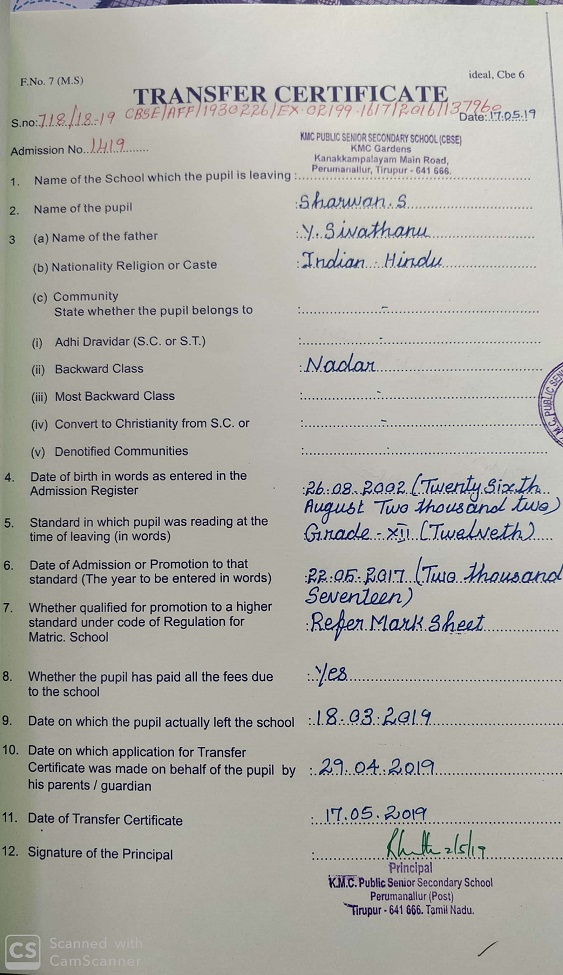 F.No. 7 (M.S)
ideal, Cbe 6
TRANSFER CERTIFICATE
S.no: 718/18-19 CBSE/AFF/1930226/EX-02199-1617/2016/137960 Date: 17.05.19
Admission No. 1419
KMC PUBLIC SENIOR SECONDARY SCHOOL (CBSE)
KMC Gardens
Kanakkampalayam Main Road,
Perumanallur, Tirupur - 641 666.
1. Name of the School which the pupil is leaving :
2. Name of the pupil : Sharwan. S
3 (a) Name of the father : Y. Sivathanu
(b) Nationality Religion or Caste : Indian - Hindu
(c) Community
State whether the pupil belongs to : -
(i) Adhi Dravidar (S.C. or S.T.) : -
(ii) Backward Class : Nadar
(iii) Most Backward Class : -
(iv) Convert to Christianity from S.C. or : -
(v) Denotified Communities : -
4. Date of birth in words as entered in the
Admission Register : 26.08.2002 (Twenty Sixth
August Two thousand two)
5. Standard in which pupil was reading at the
time of leaving (in words) Grade - XII (Twelveth)
6. Date of Admission or Promotion to that
standard (The year to be entered in words) : 22.05.2017 (Two thousand
Seventeen)
7. Whether qualified for promotion to a higher
standard under code of Regulation for : Refer Mark Sheet
Matric. School
8. Whether the pupil has paid all the fees due : Yes
to the school
9. Date on which the pupil actually left the school : 18.03.2019
10. Date on which application for Transfer
Certificate was made on behalf of the pupil by : 29.04.2019
his parents / guardian
11. Date of Transfer Certificate : 17.05.2019
12. Signature of the Principal :
Principal
K.M.C. Public Senior Secondary School
Perumanallur (Post)
Tirupur - 641 666. Tamil Nadu.
M.C. PUBLIC SEN
CS Scanned with
CamScanner